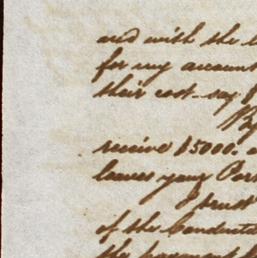 and with the
for my account
their cost - say
By
receive $5000.
leaves your Por
I trust
of the Conducto
the payment